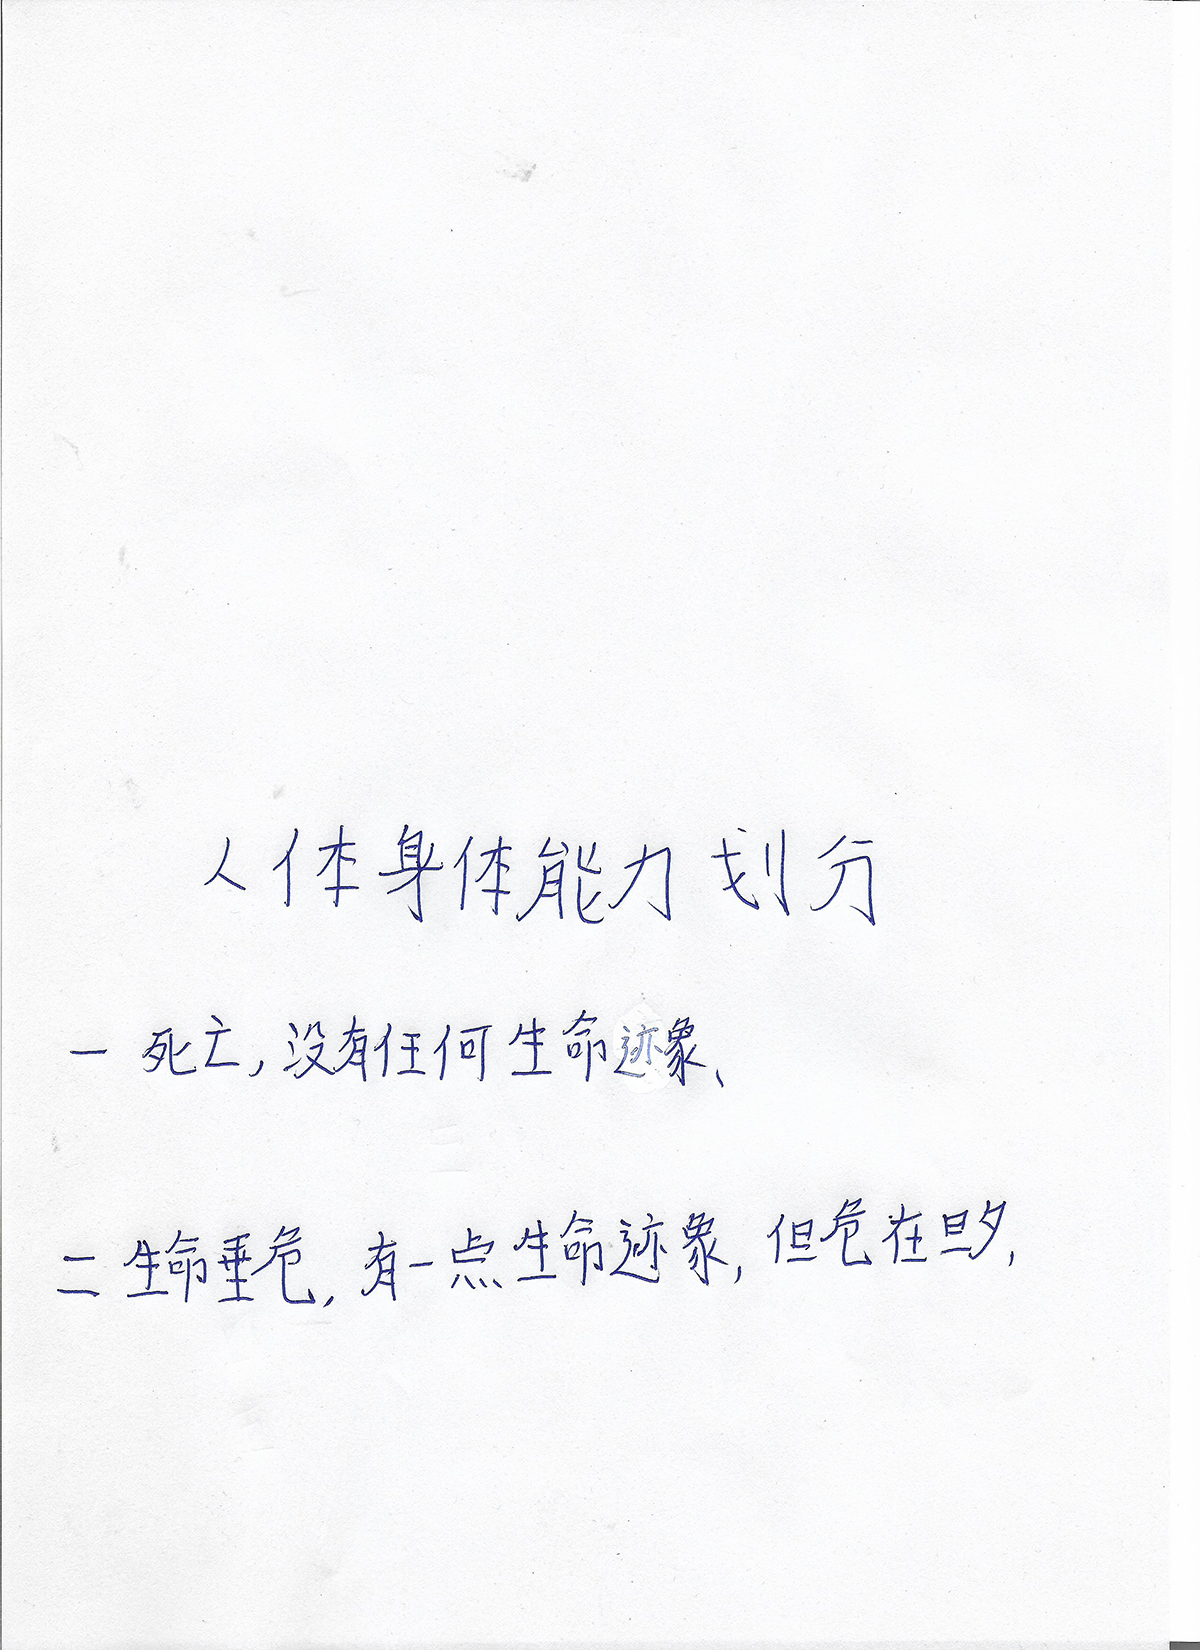 人体身体能力划分
一 死亡,没有任何生命迹象、
二 生命垂危,有一点生命迹象,但危在旦夕、